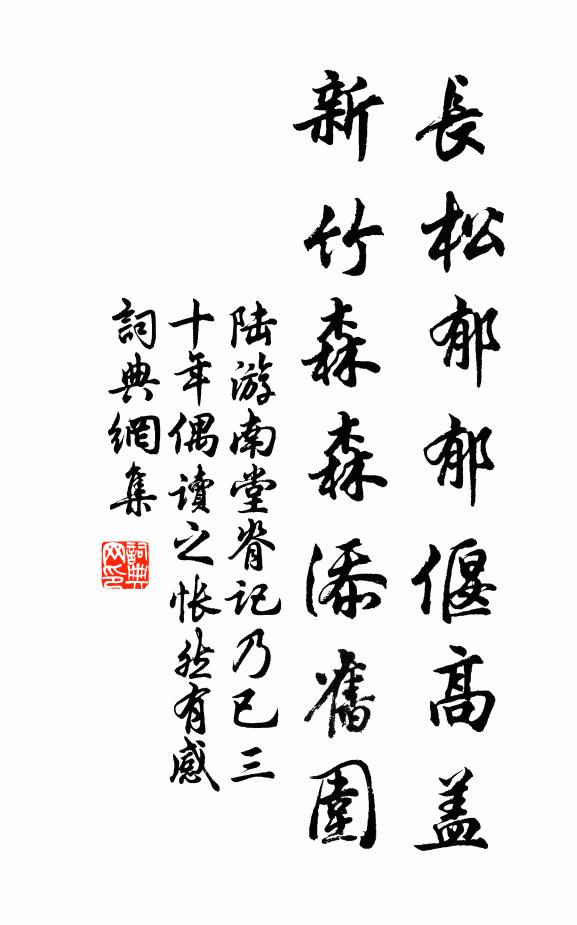 長松郁郁偃高盖
新竹森森添舊圍
陆游南堂脊记乃已三
十年偶讀之怅然有感
詞典網集
詞典
网印